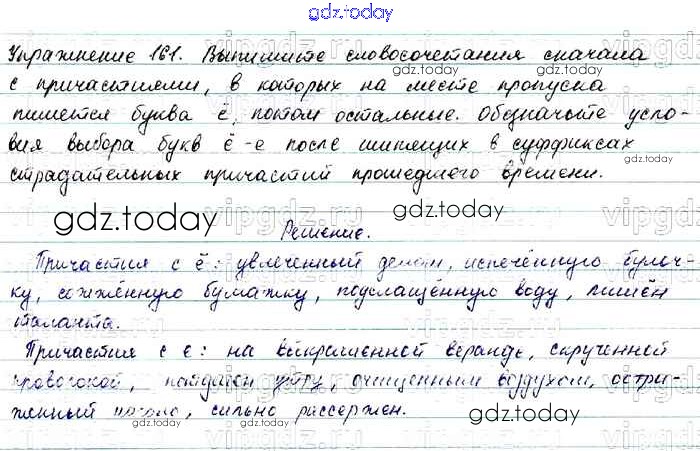 gdz.today
Упражнение 161. Выпишите словосочетания сначала
с причастиями, в которых на месте пропуска
пишется буква ё, потом остальные. Обозначьте усло-
вия выбора букв ё-е после шипящих в суффиксах
страдательных причастий прошедшего времени.
gdz.today
Решение.
Причастия с ё: увлечённый делом, испечённую булоч-
ку, сожжённую бумажку, подслащённую воду, лишён
таланта.
Причастия с е: на выкрашенной веранде, скрученной
проволокой, очищенным воздухом, остри-
женный наголо, сильно рассержен.
gdz.today